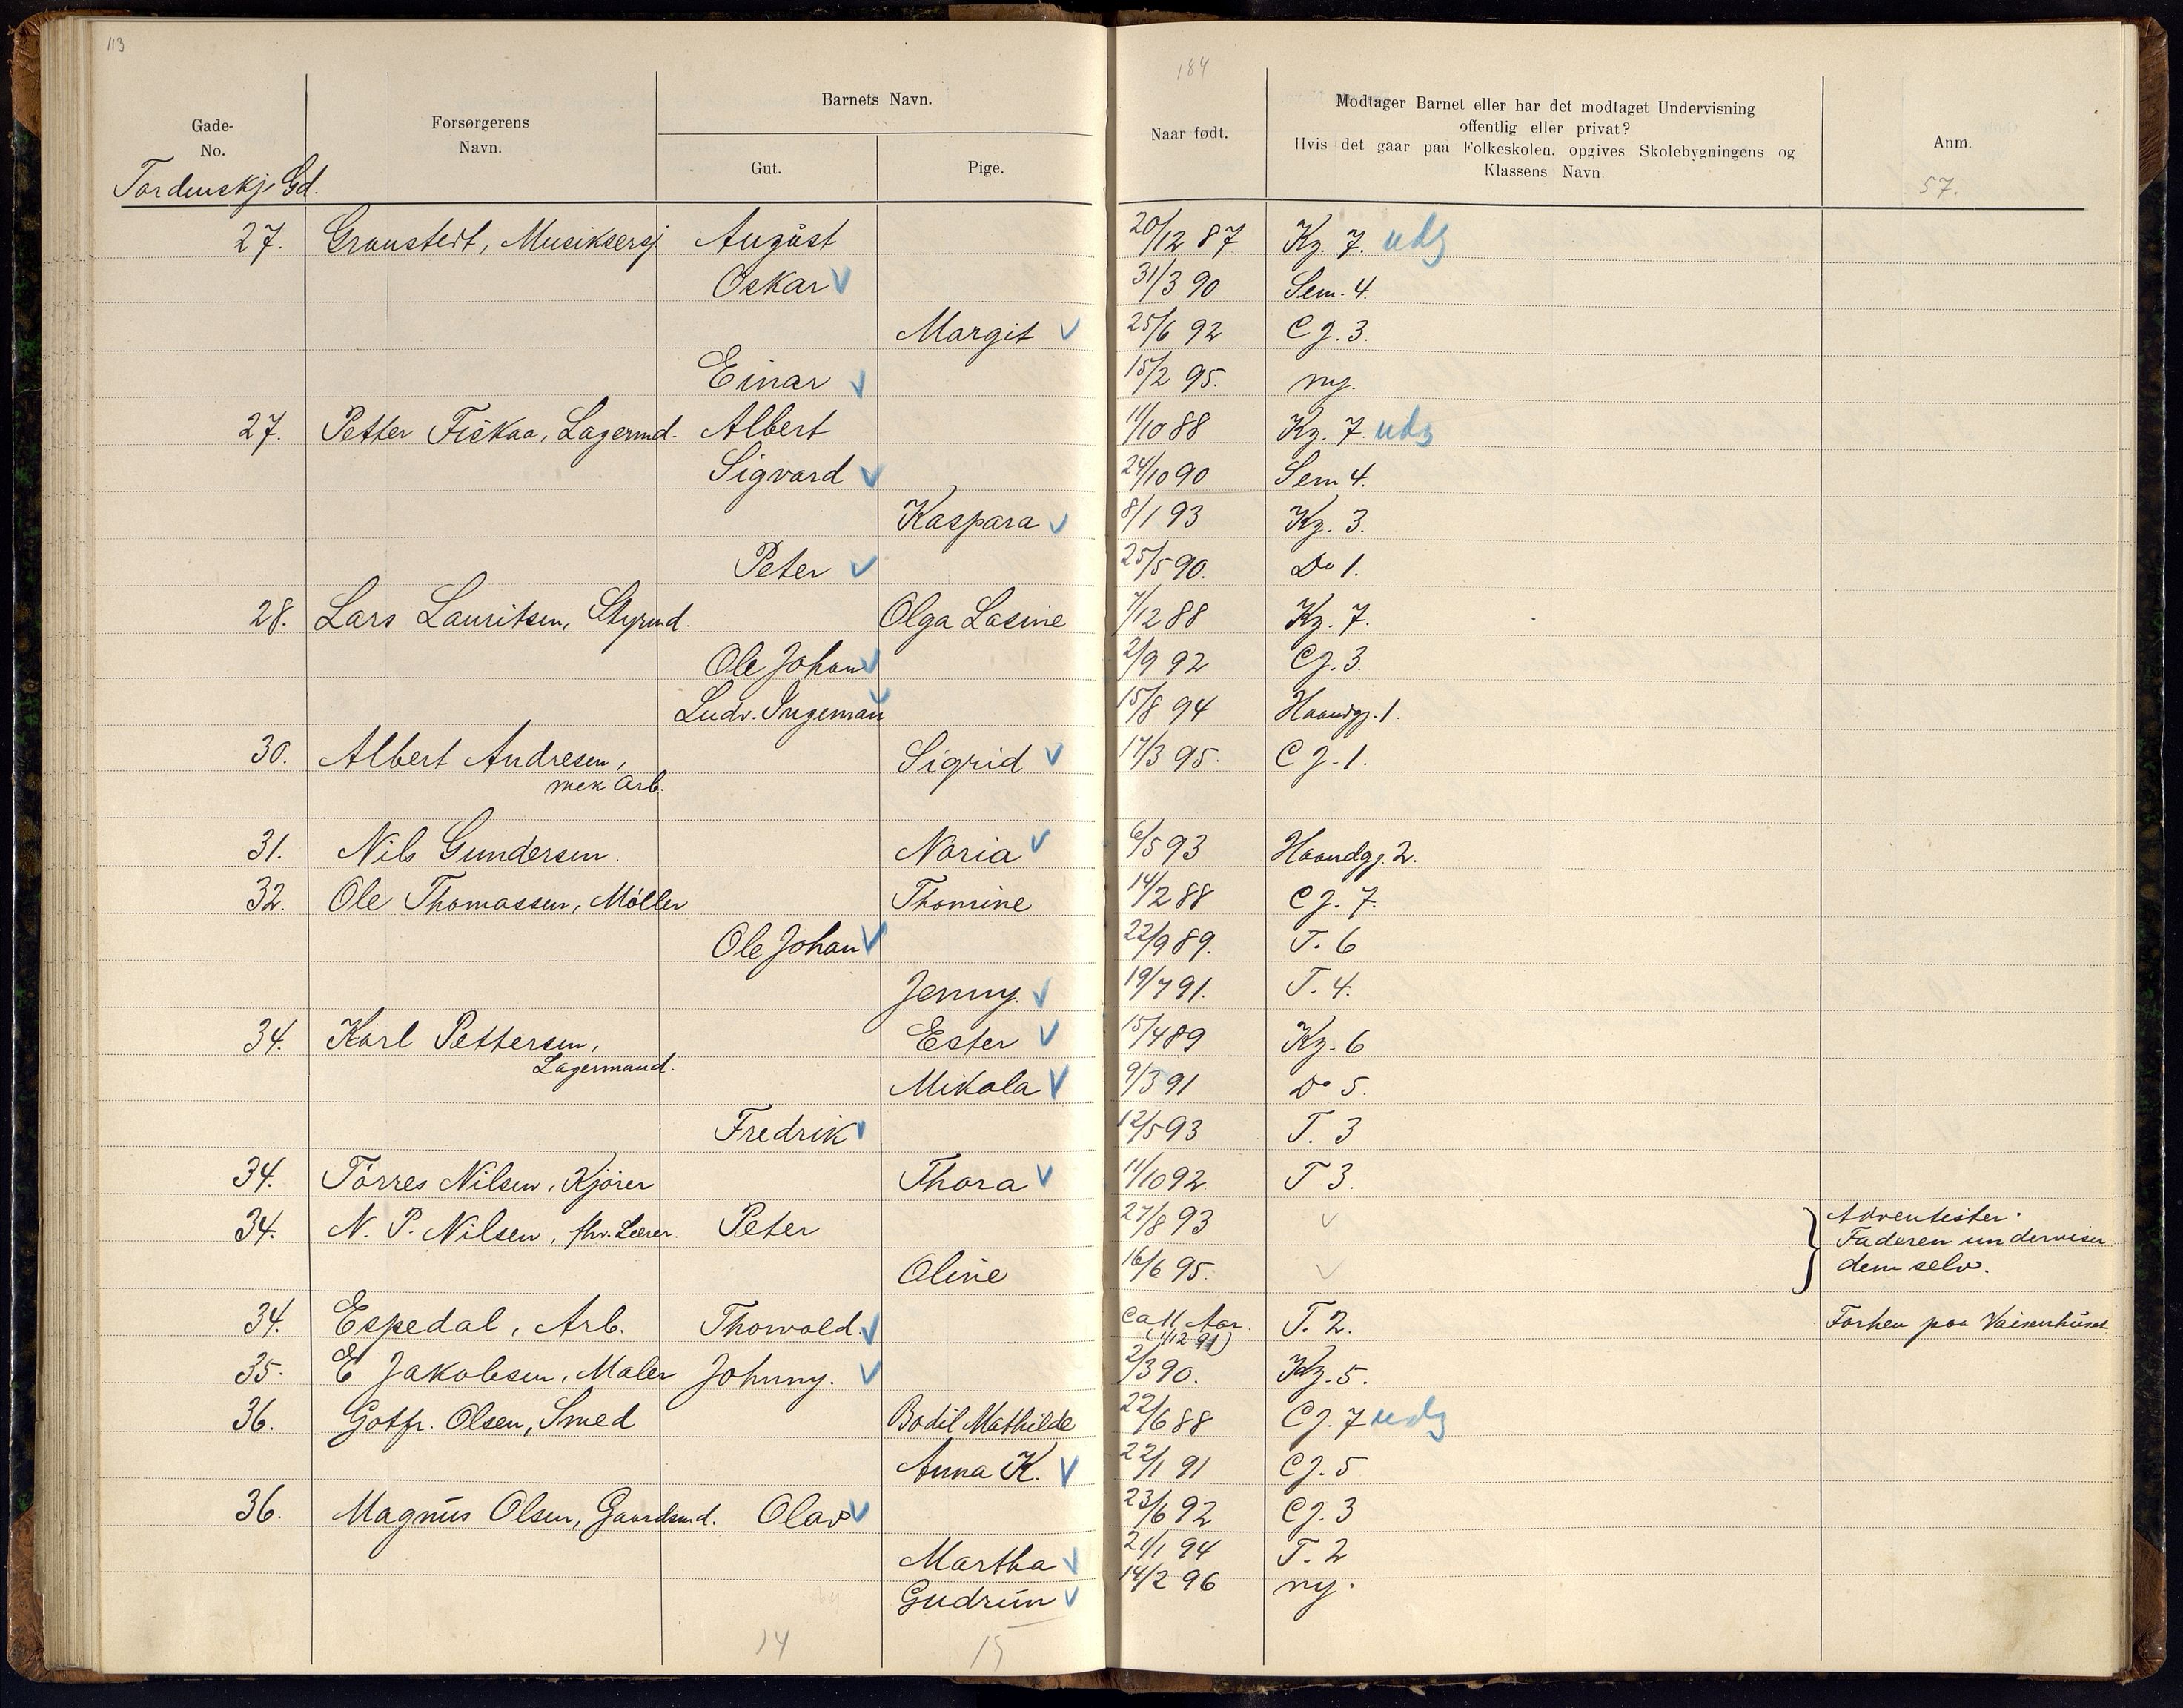 113
184
Gade-
No.
Forsørgerens
Navn.
Barnets Navn.
Gut.
Pige.
Naar født.
Modtager Barnet eller har det modtaget Undervisning
offentlig eller privat?
Hvis det gaar paa Folkeskolen, opgives Skolebygningens og
Klassens Navn.
Anm.
57.
Tordenskj. Gd.
27. Granstedt, Musiksersj. August 20/12 87 Kg. 7. udg
Oskar V 31/3 90 Sem. 4.
Margit V 25/6 92 C J. 3.
Einar V 15/2 95. ny.
27. Petter Fiskaa, Lagermd. Albert 11/10 88 Kg. 7. udg
Sigvard V 24/10 90 Sem 4.
Kaspara V 8/1 93 Kg. 3.
Peter V 25/5 90. Do 1.
28. Lars Lauritsen, Styrmd. Olga Lasine 7/12 88 Kg. 7.
Ole Johan V 2/9 92 C J. 3.
Ludv. Ingeman V 15/8 94 Haandgj. 1.
30. Albert Andresen, Sigrid V 17/3 95. C J. 1.
mek Arb.
31. Nils Gundersen. Noria V 6/5 93 Haandgj. 2.
32. Ole Thomassen, Møller Thomine 14/2 88 C J. 7.
Ole Johan V 22/9 89. T. 6
Jenny. V 19/7 91. T. 4.
34. Karl Pettersen, Ester V 15/4 89 Kg. 6
Lagermand.
Mikola V 9/3 91 Do 5.
Fredrik V 12/5 93 T. 3
34. Tørres Nilsen, Kjører Thora V 11/10 92. T 3.
34. N. P. Nilsen, fhv. Lærer. Peter 27/8 93 V } Adventister.
Faderen underviser
Oline 16/6 95. V dem selv.
34. Espedal, Arb. Thorvald. V Ca 11 Aar. T. 2. Forhen paa Vaisenhuset
(1/12 91)
35. E Jakobsen, Maler Johnny. V 2/3 90. Kg. 5.
36. Gotfr. Olsen, Smed Bodil Mathilde 22/6 88 C J. 7 udg
Anna K. V 22/1 91 C J. 5
36. Magnus Olsen, Gaardsmd. Olav V 23/6 92 C J. 3
Martha V 21/1 94 T. 2
Gudrun V 14/2 96 ny.
14 15